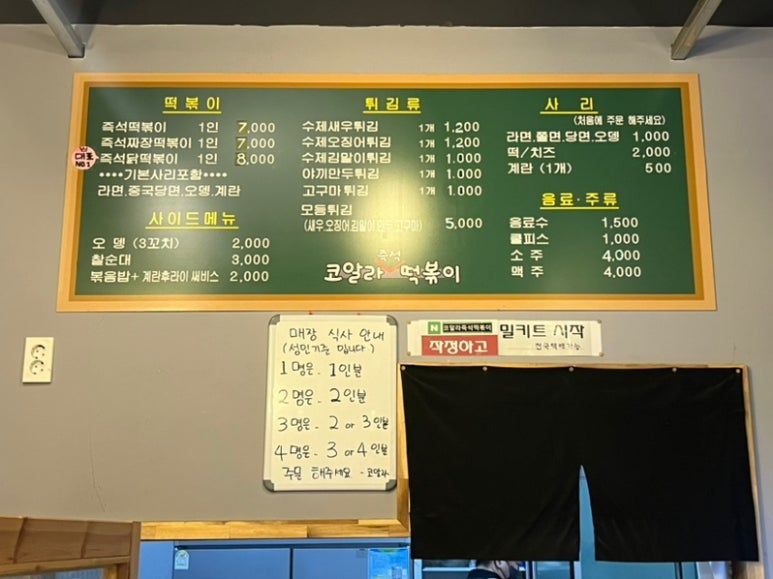 떡볶이
즉석떡볶이 1인 7,000
즉석짜장떡볶이 1인 7,000
대표 NO.1
즉석닭떡볶이 1인 8,000
••••기본사리포함••••
라면.중국당면.오뎅.계란
사이드메뉴
오 뎅 (3꼬치) 2,000
찰순대 3,000
볶음밥+계란후라이써비스 2,000
튀김류
수제새우튀김 1개 1,200
수제오징어튀김 1개 1,200
수제김말이튀김 1개 1.000
야끼만두튀김 1개 1.000
고구마튀김 1개 1.000
모듬튀김 5,000
(새우.오징어김말이만두.고구마)
즉석
코알라 떡볶이
사 리
(처음에 주문 해주세요)
라면.쫄면.당면.오뎅 1,000
떡/치즈 2,000
계란 (1개) 500
음료·주류
음료수 1,500
쿨피스 1,000
소 주 4,000
맥 주 4,000
매장 식사 안내
(성인기준 입니다)
1명은- 1인분
2명은- 2인분
3명은- 2 or 3인분
4명은- 3 or 4인분
주문 해주세요 -코알라
N 코알라즉석떡볶이
작정하고
밀키트 시작
전국택배가능.